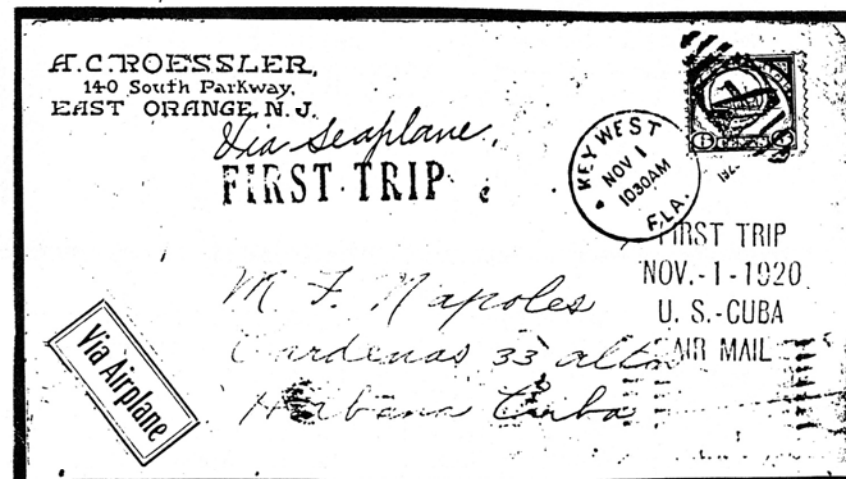 A.C. ROESSLER,
140 South Parkway,
EAST ORANGE, N. J.
Via Seaplane,
FIRST TRIP
KEY WEST
NOV 1
1030AM
FLA.
6 CENTS 6
FIRST TRIP
NOV.-1-1920
U. S.-CUBA
AIR MAIL
M. F. Napoles
Cardenas 33 altos
Habana Cuba
Via Airplane